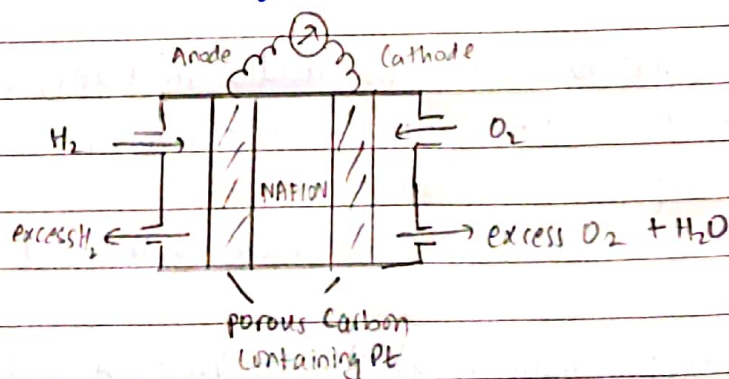 Anode Cathode
H₂ O₂
NAFION
excess H₂ excess O₂ + H₂O
porous Carbon
Containing Pt